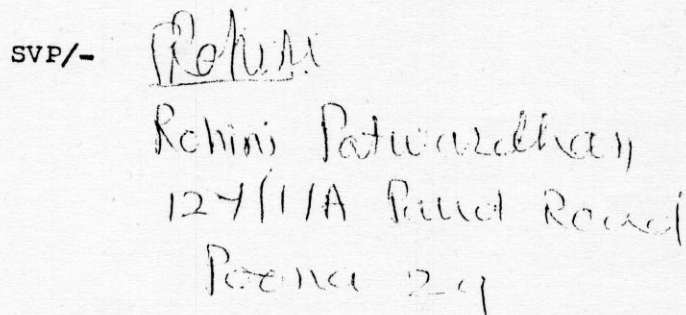 SVP/- Rohini
Rohini Patwardhan
127/1/A Paud Road
Poona 29